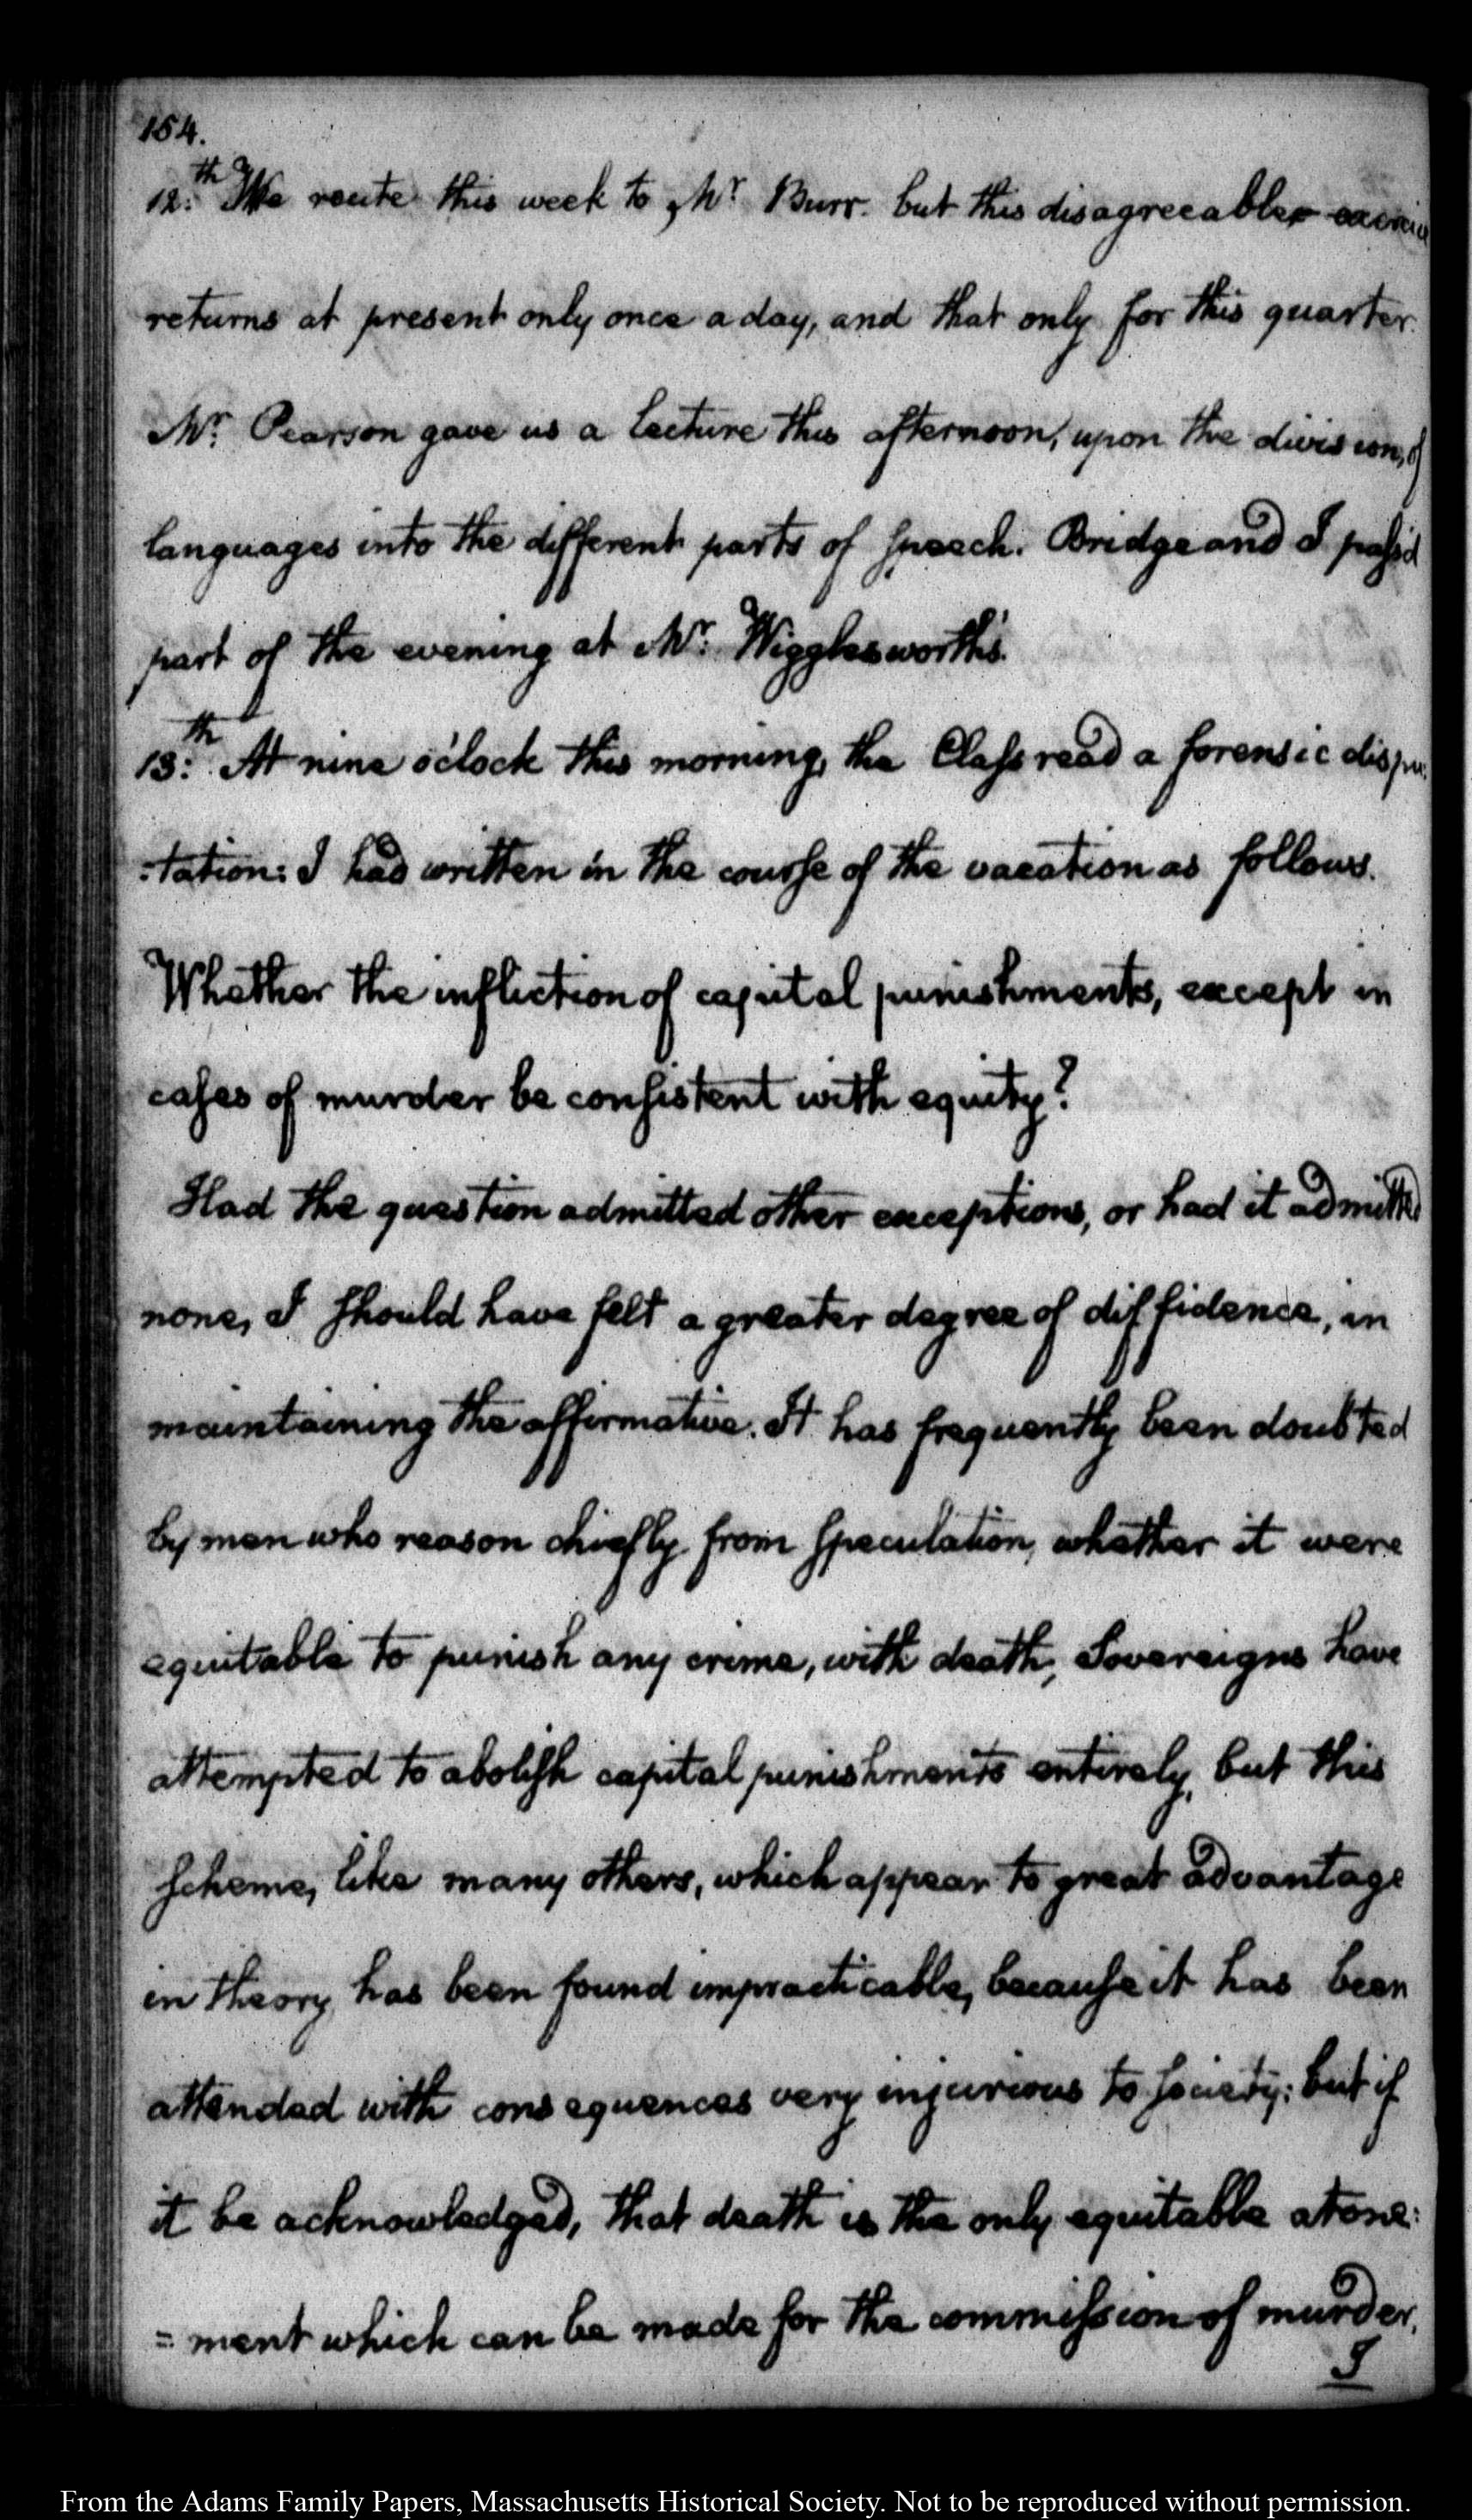 154.
12.th We recite this week to Mr. Burr. but this disagreeable
returns at present only once a day, and that only for this quarter.
Mr. Pearson gave us a Lecture this afternoon, upon the division, of
languages into the different parts of speech. Bridge and I pass'd
part of the evening at Mr. Wigglesworth's.
13.th At nine o'clock this morning, the Class read a forensic dispu
:tation: I had written in the course of the vacation as follows.
Whether the infliction of capital punishments, except in
cases of murder be consistent with equity?
Had the question admitted other exceptions, or had it admitted
none, I should have felt a greater degree of diffidence, in
maintaining the affirmative. It has frequently been doubted
by men who reason chiefly from speculation, whether it were
equitable to punish any crime, with death, Sovereigns have
attempted to abolish capital punishments entirely, but this
scheme, like many others, which appear to great advantage
in theory, has been found impracticable, because it has been
attended with consequences very injurious to society: but if
it be acknowledged, that death is the only equitable atone:
=ment which can be made for the commission of murder,
I
From the Adams Family Papers, Massachusetts Historical Society. Not to be reproduced without permission.